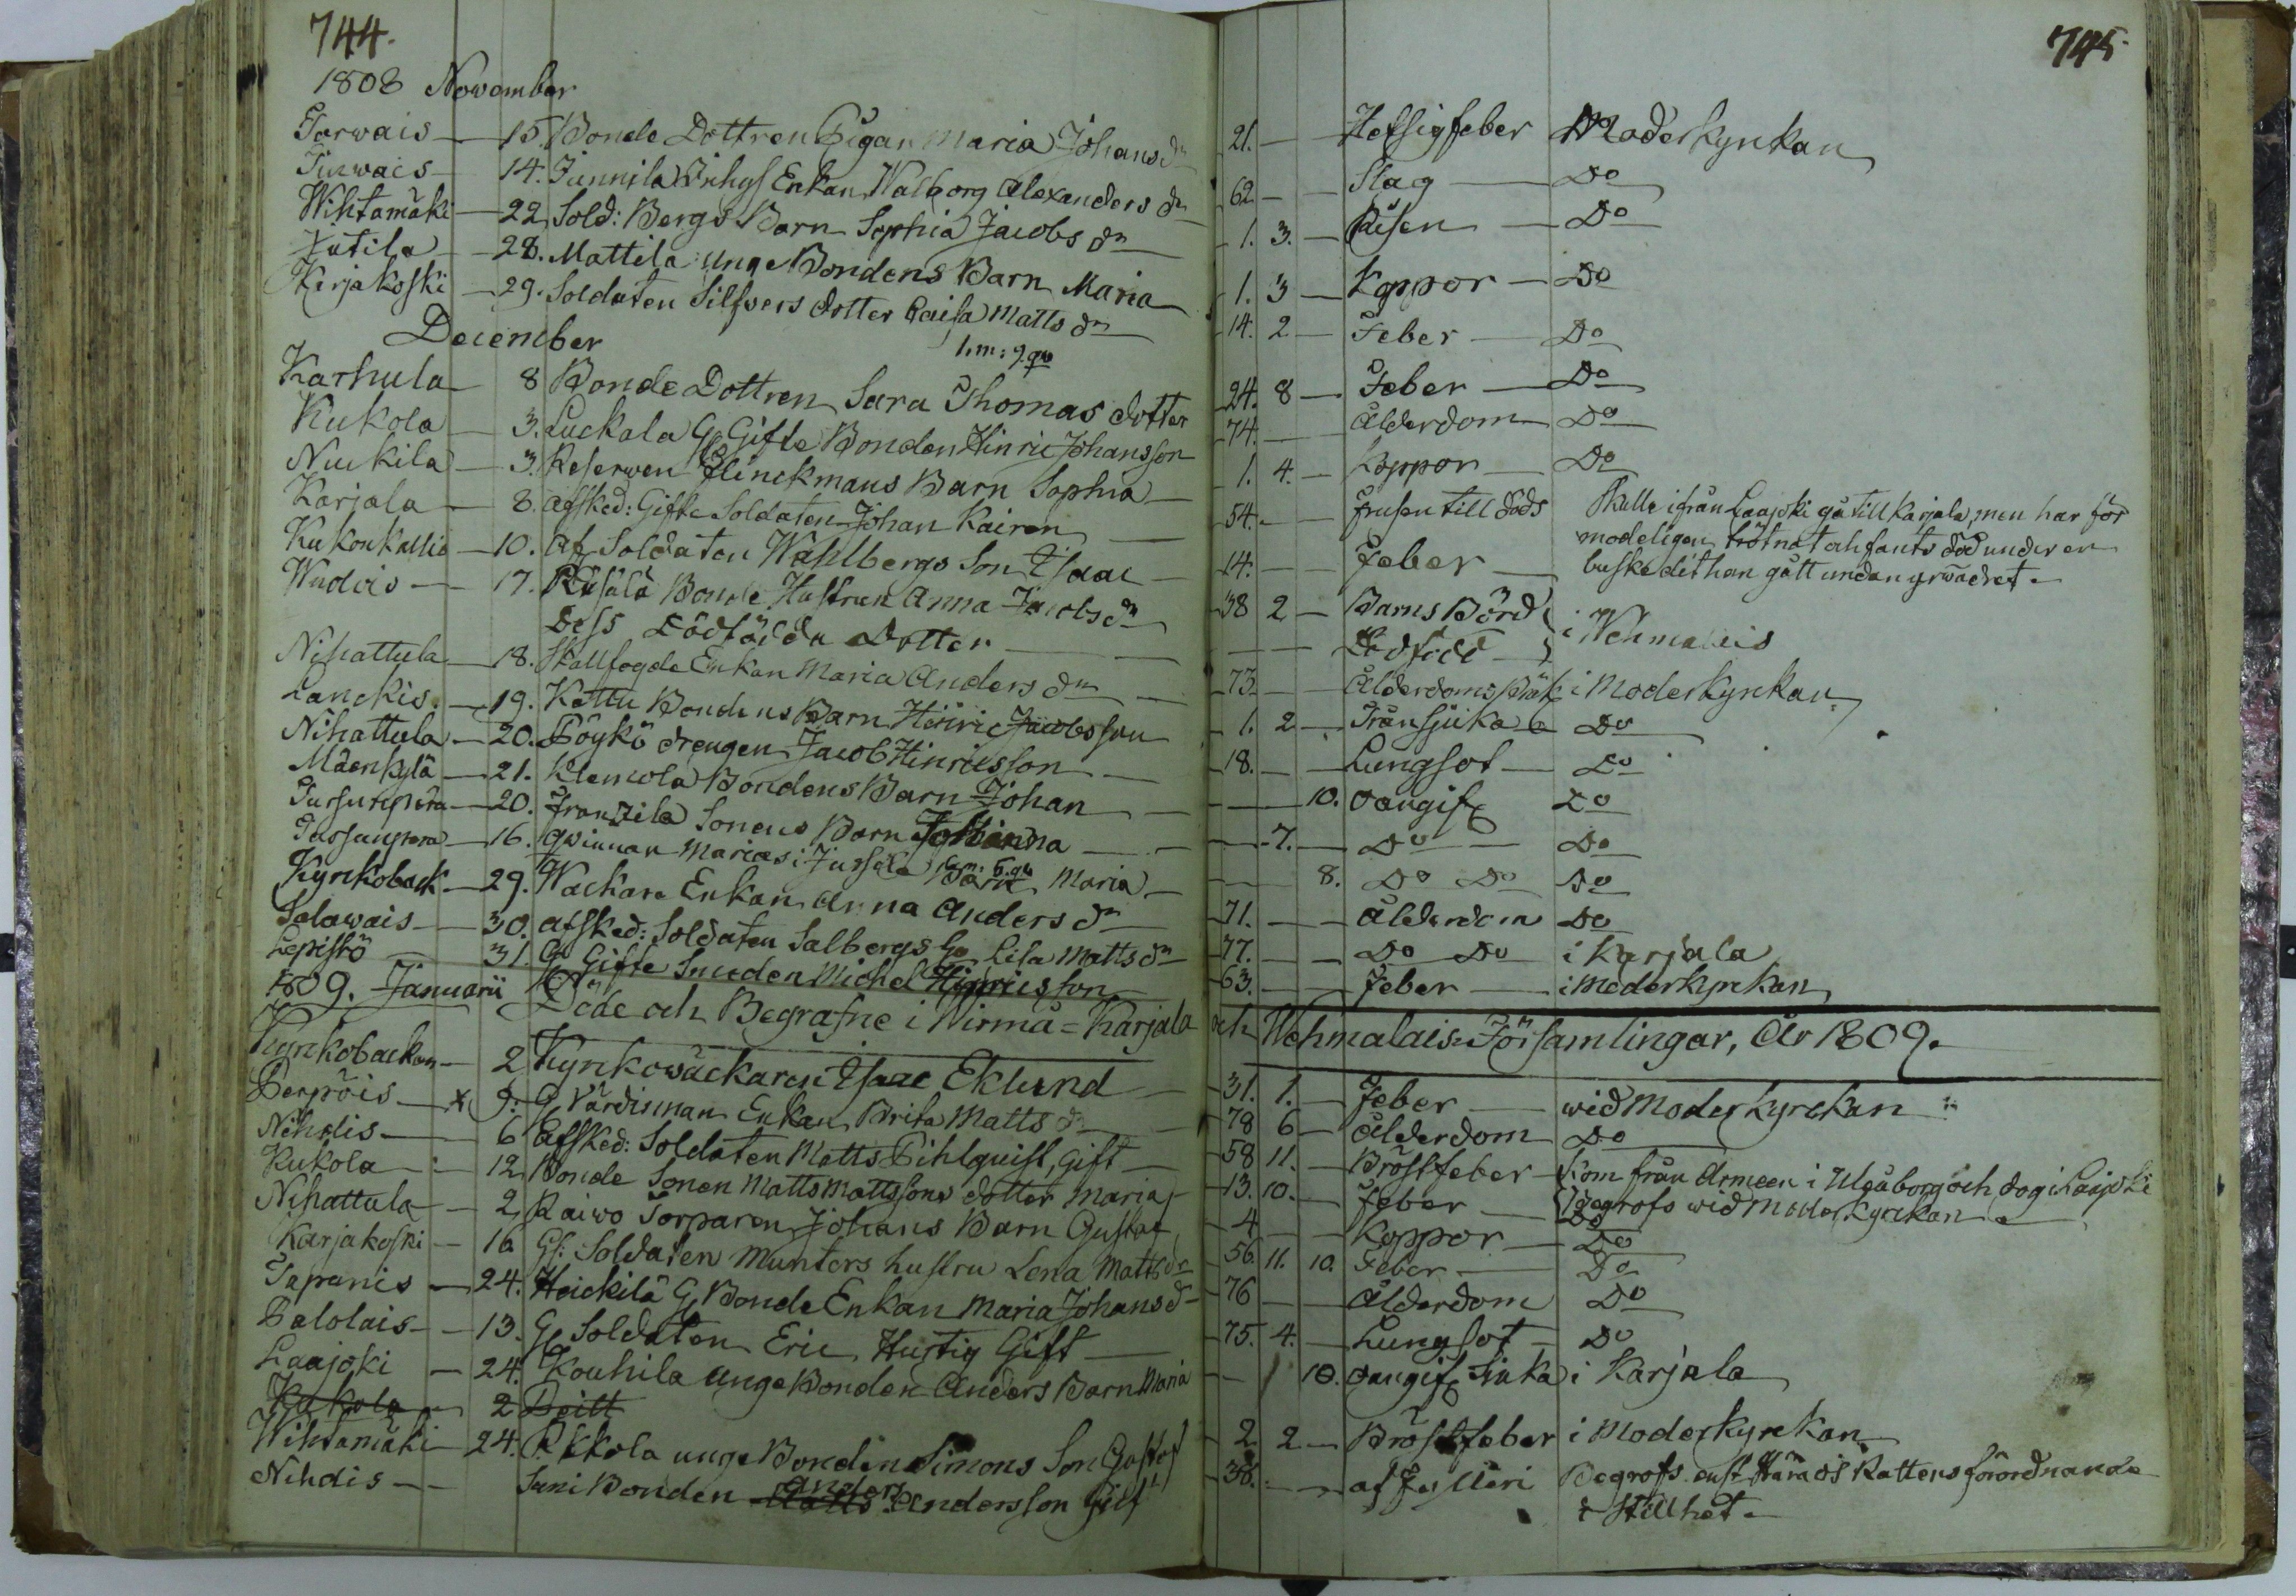 744.
1808 November
Tarwais 15. Bonde Dottren Pigan Maria Johans dr
Tarwais 14. Junnila Inhys Enkan Walborg Alexanders dr
Wihtamäki 22 Sold: Bergs Barn Sophia Jacobs dr
28. Mattila unge Bondens Barn Maria
Kirjakoski 29. Soldaten Silfvers dotter Caisa Matts dr
December
Karhula 8 Bonde Dottren Sara Thomas dotter
Kukola 3. Luckala G. Gifte Bonden Hinric Johansson
Nuckila 3. Reserven Flinckmans Barn Sophia
Karjala 8. Afsked: Gifte Soldaten Johan Kairen
Kukonkallio 10. Af Soldaten Wahlbergs Son Isaac
17. Räsälä Bonde Hustrun Anna Jacobs dr
Dess Dödfödda Dotter
Nihattula 18. Skallfogde Enkan Maria Anders dr
Lanckis 19. Kottu Bondens Barn Hinric Jacobsson
Nihattula 20. Pöykö drengen Jacob Hinricsson
Mäenkylä 21. Klemola Bondens Barn Johan
Tursunpera 20. Franzila Sonens Barn Johanna
Tursunpera 16. Qwinnan Marias i Jussila Barn Maria
1. m: 9. qw
6. m: 6. qw
Kyrckoback 29. Wackare Enkan Anna Anders dr
Salawais 30. Afsked: Soldaten Salbergs Ge Lisa Matts dr
Lepistö 31. G. Gifte Smeden Michel Hinricsson
1809. Januarii Döde och Begrafne i Wirmå=Karjala
Kyrckobackan 2 Kyrckowäckaren Isaac Eklund
Perpöis x 9. G. Värdisman Enkan Brita Matts dr
Nihdis 6 Afsked: Soldaten Matts Pihlquist, Gift
Kukola 12 Bonde Sonen Matts Mattssons dotter Maria
Nihattula 2 Raiwo Torparen Johans Barn Gustaf
Karjakoski 16 Gl: Soldaten Munters hustru Lena Matts dr
Tapanis 24. Heickilä G. Bonde Enkan Maria Johans dr
Palolais 13. G. Soldaten Eric Hurtig Gift
Laajoki 24. Kouhila unge Bonden Anders Barn Maria
Kukola 2 Ditt
Wihtamäki 24. Pickola unge Bonden Simons Son Gustaf
Nihdis Suni Bonden Matts Anders Andersson Gift
745.
21. Hetsigfeber Moderkyrkan
62 Slag Do
1. 3. Risen Do
1. 3 Koppor Do
14. 2 Feber Do
24. 8 Feber Do
74. Ålderdom Do
1. 4. Koppor Do
54. frusen till döds Skulle ifrån Laajoki gå till Karjala, men har för
modeligen tröttnat och fants död under en
buske dit han gått undan yrwädret.
14. Feber
38 2 Barns Börd i Wehmalais
Dödfödd
73 Ålderdoms Bräk i Moderkyrkan
1. 2 Tränsjuka Do
18. Lungsot Do
10. oangif. Do
7. Do Do
8. Do Do Do
71. ålderdom Do
77. Do Do i Karjala
63. Feber i Moderkyrkan
och Wehmalais Församlingar, År 1809.
31. 1. Feber wid Moderkyrckan
78 6 Ålderdom Do
58 11. Bröstfeber Kom från Armeen i Uleåborg och dog i Laajoki
Begrofs wid Moderkyrckan
13. 10. Feber Do
4 Koppor Do
56. 11. 10. Feber Do
76 Ålderdom Do
75. 4. Lungsot Do
10. oangif. siuka i Karjala
2 2 Bröstfeber i Moderkyrckan
38. af Fylleri Begrofs enl. Härads Rättens förordnande
i Stillhet.